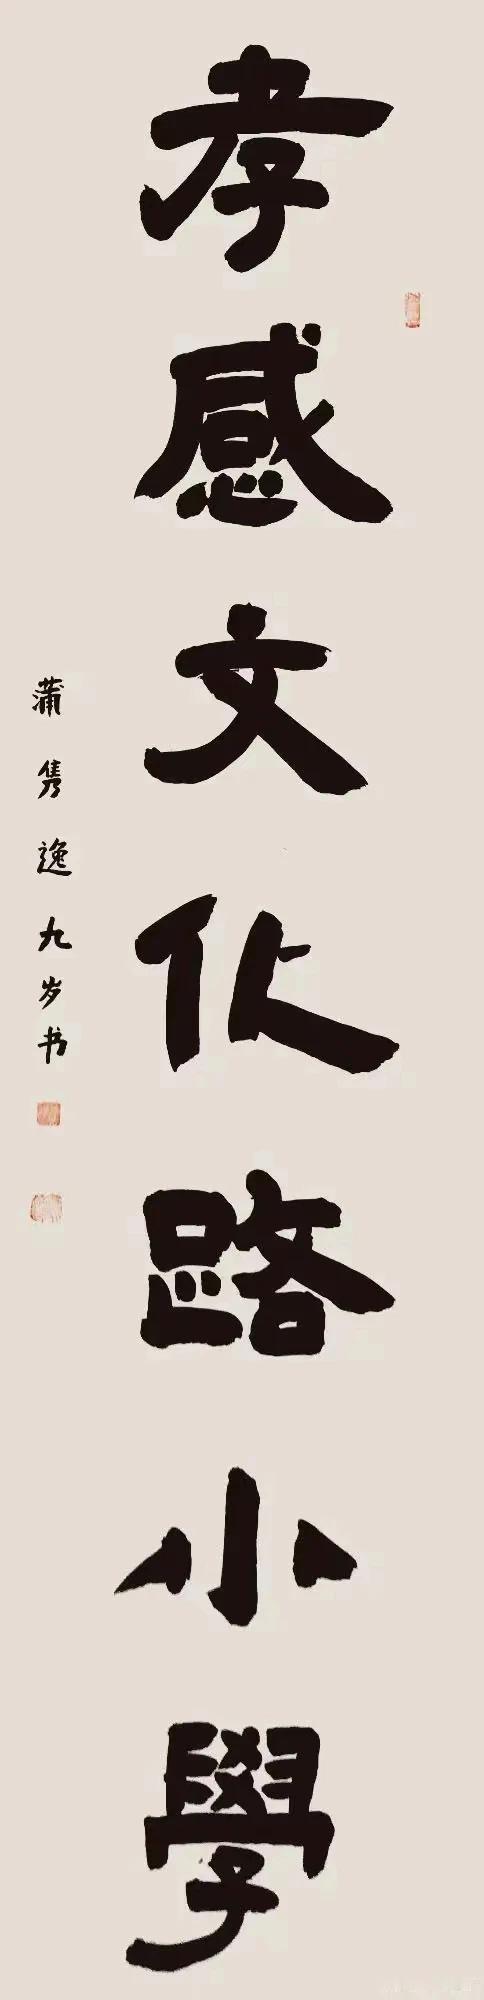 孝感文化路小學
蒲隽逸九岁书